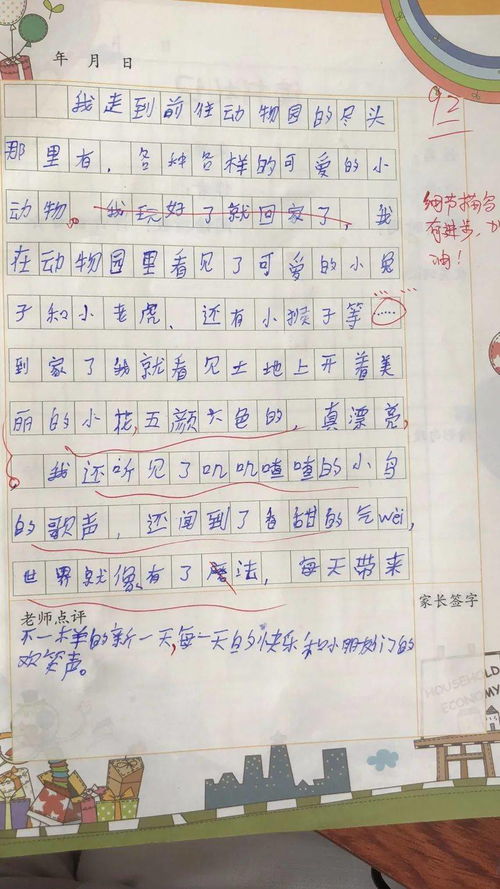 年 月 日
92
我走到前往动物园的尽头
那里有，各种各样的可爱的小
动物。我玩好了就回家了，我
细节描写
有进步，加
油！
在动物园里看见了可爱的小兔
子和小老虎、还有小猴子等……
到家了我就看见土地上开着美
丽的小花，五颜六色的，真漂亮，
我还听见了叽叽喳喳的小鸟
的歌声，还闻到了香甜的气wèi，
世界就像有了魔法，每天带来
老师点评
家长签字
不一样的新一天，每一天的快乐和小朋友门的
欢笑声。
HOUSEHOLD
ECONOMY